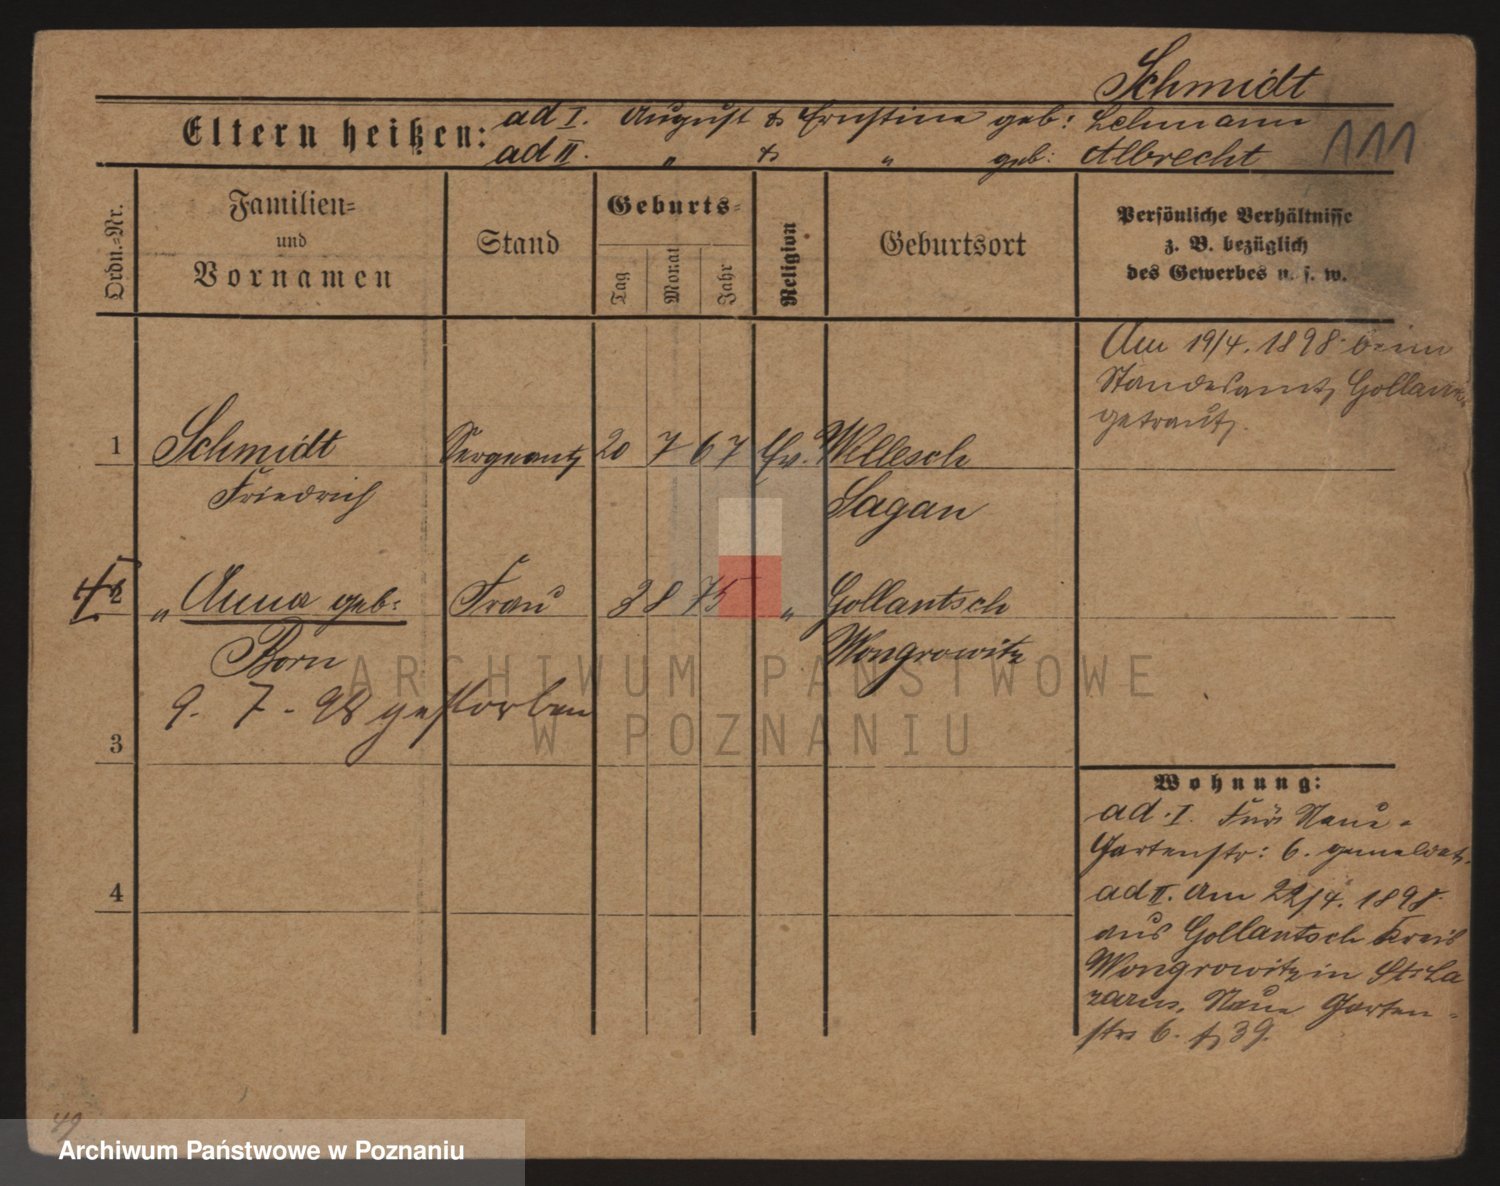 Schmidt
Eltern heißen: ad I. August & Ernstine geb: Lehmann
ad II. " & " geb: Albrecht
111
Ordn.=Nr.
Familien=
und
Vornamen
Stand
Geburts=
Tag
Monat
Jahr
Religion
Geburtsort
Persönliche Verhältnisse
z. B. bezüglich
des Gewerbes u. s. w.
Am 19/4. 1898 beim
Standesamt Gollantsch
getraut.
1 Schmidt Sergeant 20 7 67 Ev. Wellesch
Friedrich Sagan
2 " Anna geb: Frau 3 8 75 " Gollantsch
Born Wongrowitz
9. 7. 98 gestorben
3
4
Wohnung:
ad. I. Neue=
Gartenstr: 6. gemeldet.
ad II. Am 22/4. 1898
aus Gollantsch Kreis
Wongrowitz in St. La
zarus, Neue Garten=
str. 6. 39.
49
ARCHIWUM PAŃSTWOWE
W POZNANIU
Archiwum Państwowe w Poznaniu